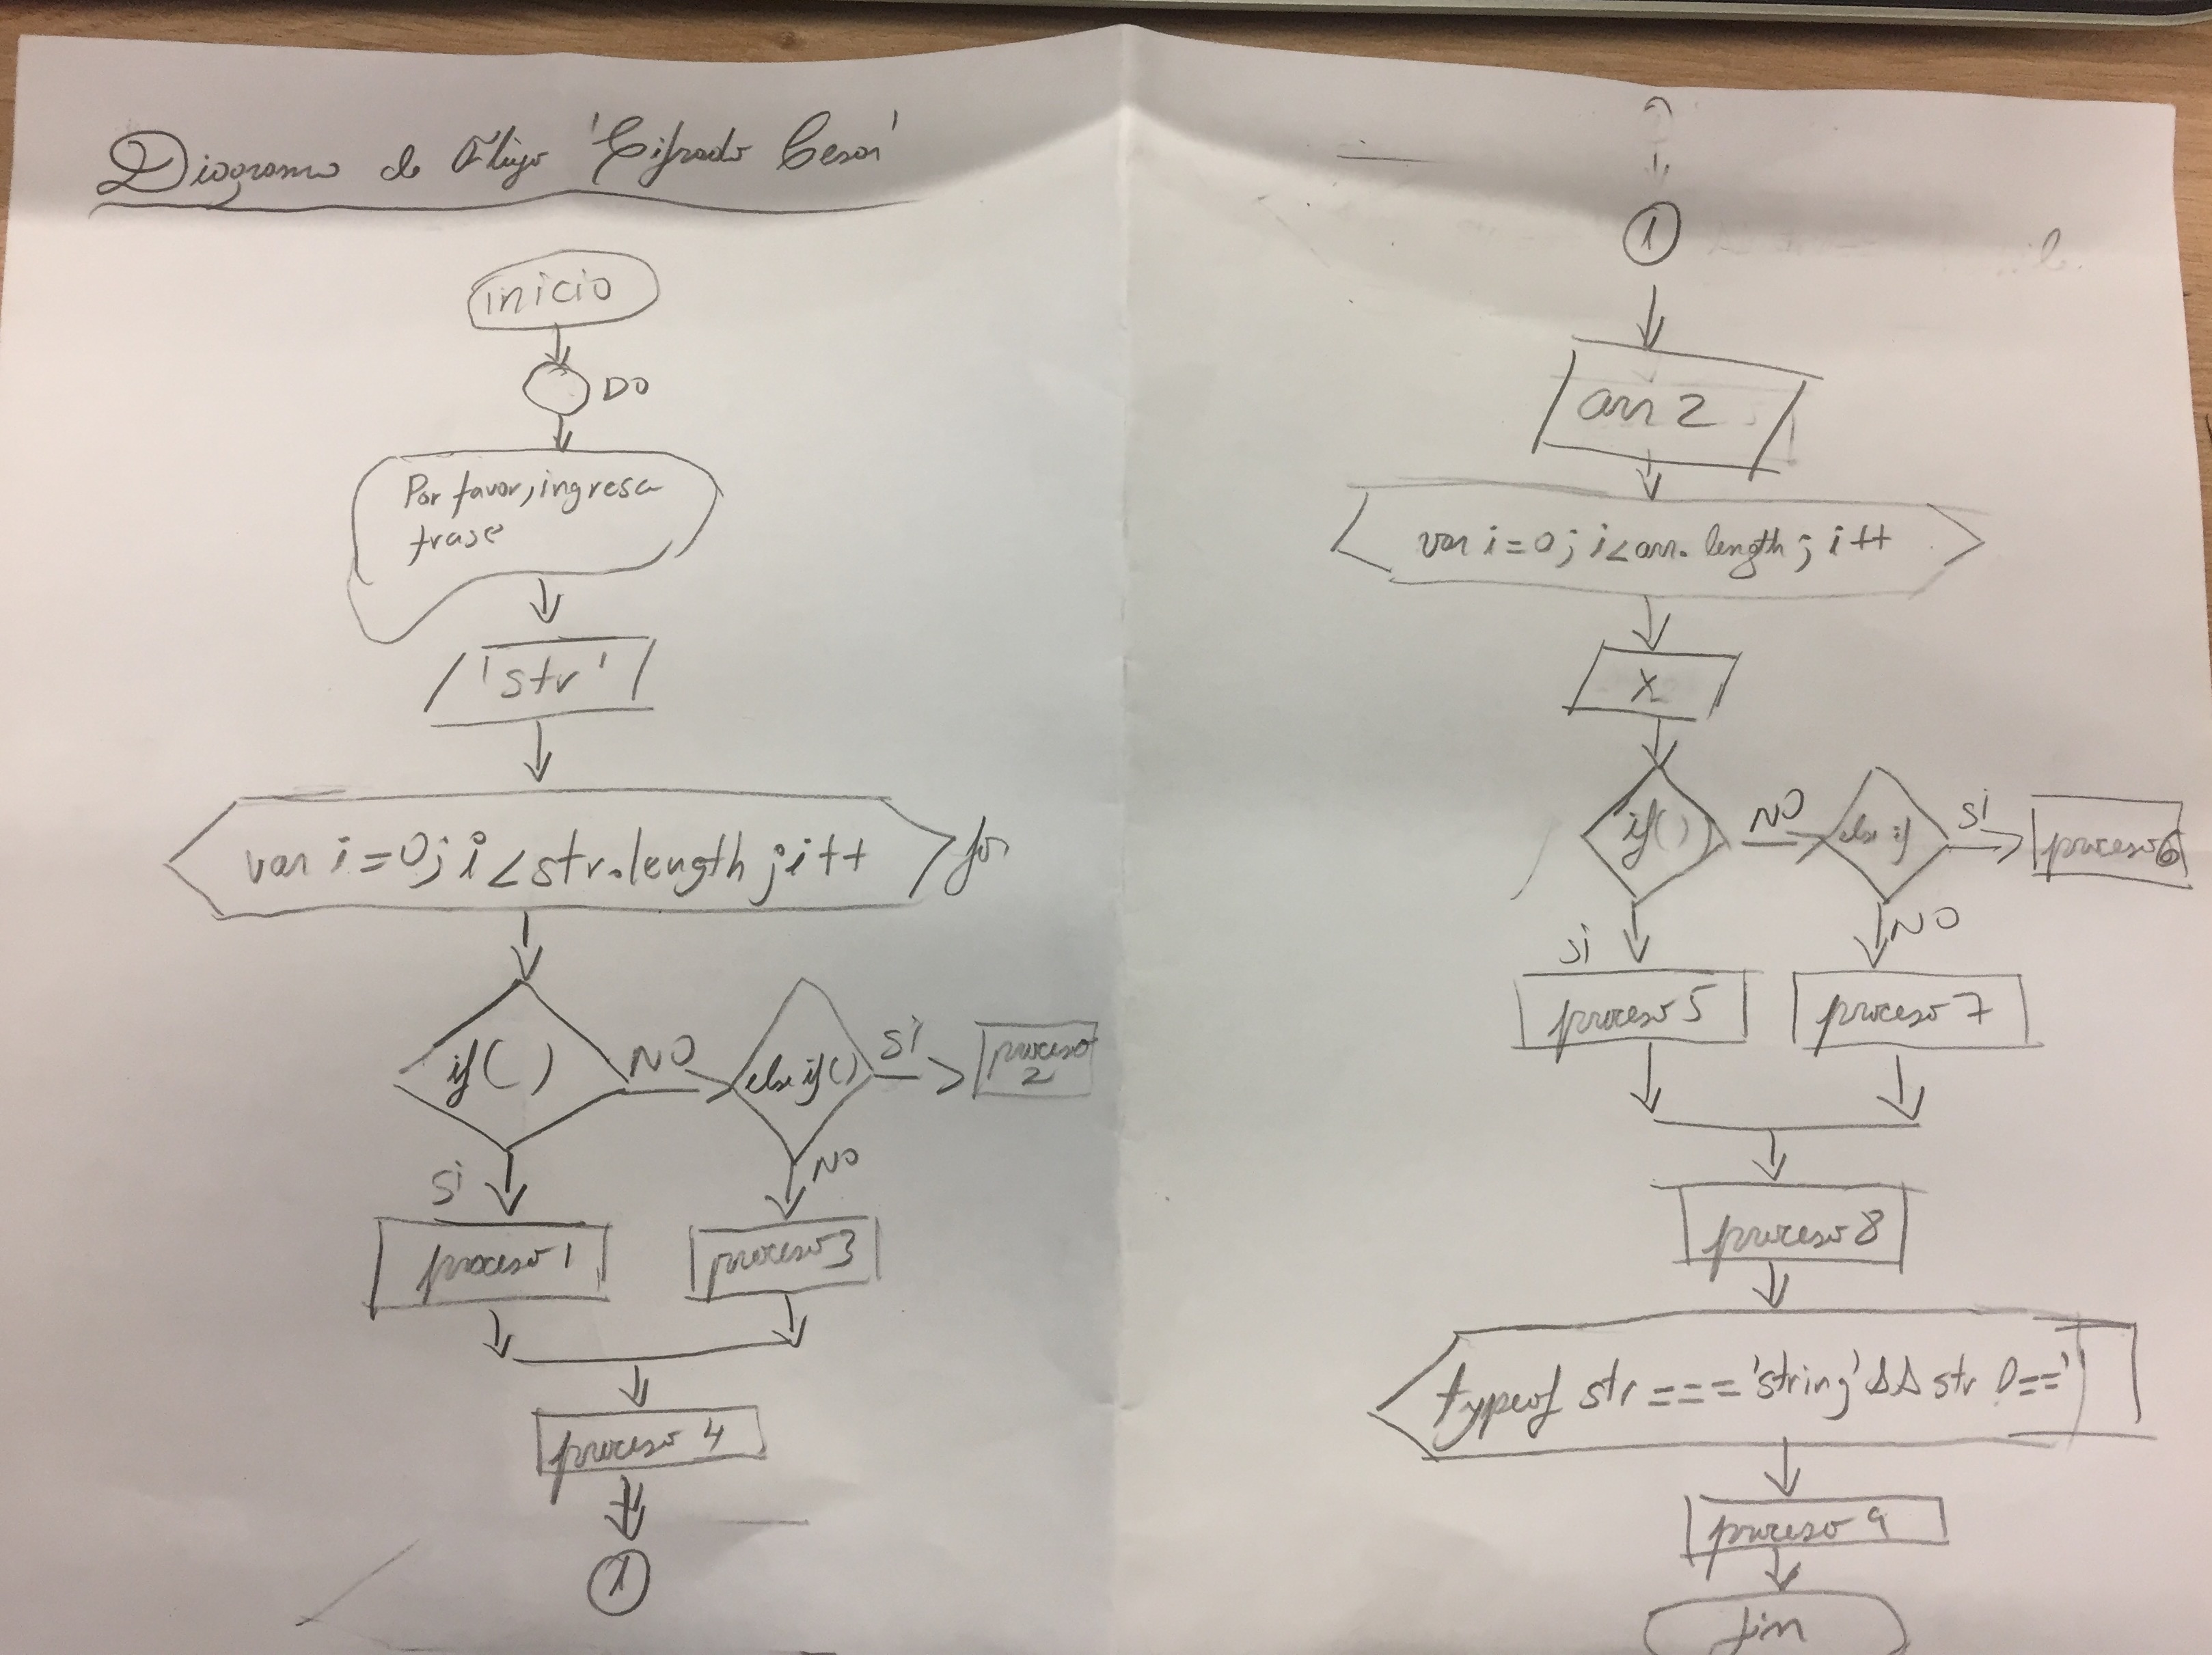 Diagrama de Flujo 'Cifrado Cesar'
inicio
DO
Por favor, ingresa
frase
'str'
var i=0; i<str.length; i++
for
if( )
NO
else if( )
si
proceso
2
si
NO
proceso 1
proceso 3
proceso 4
1
1
arr 2
var i=0; i<arr.length; i++
x
if( )
NO
else if
si
proceso 6
si
NO
proceso 5
proceso 7
proceso 8
typeof str === 'string' && str
proceso 9
fin